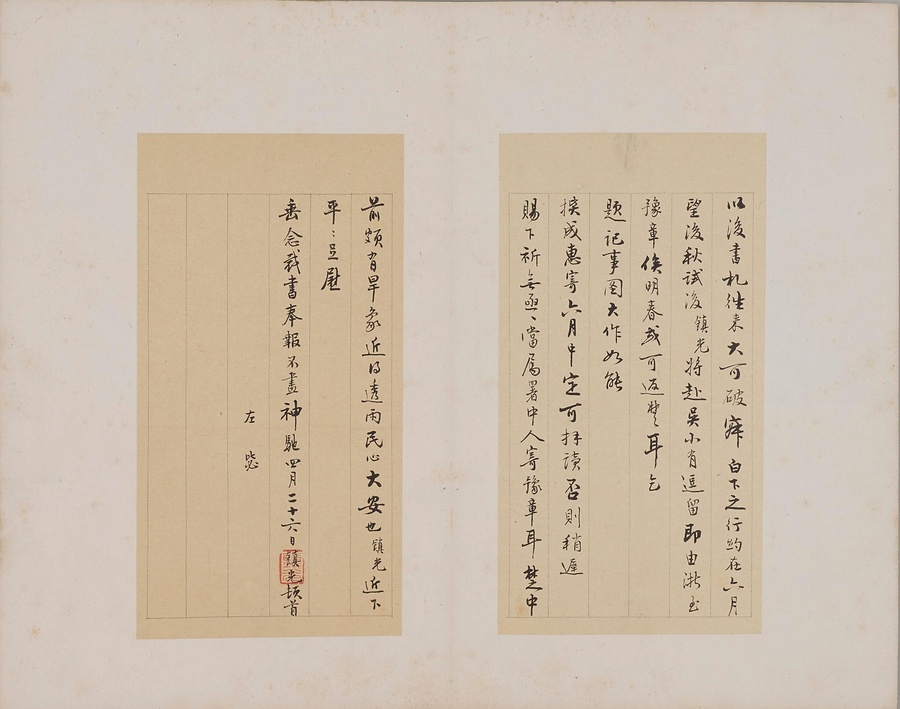 以後書札往来大可破寂白下之行約在六月
望後秋試後鎮光將赴吳小有逗留即由浙至
豫章俟明春或可返楚耳乞
題記事圖大作如能
揆成惠寄六月中定可拜讀否則稍遲
賜下祈無亟〻當属署中人寄豫章耳楚中
前頗有旱象近得透雨民心大安也鎮光近下
平〻足慰
垂念裁書奉報不盡神馳四月二十六日鎮光頓首
左毖